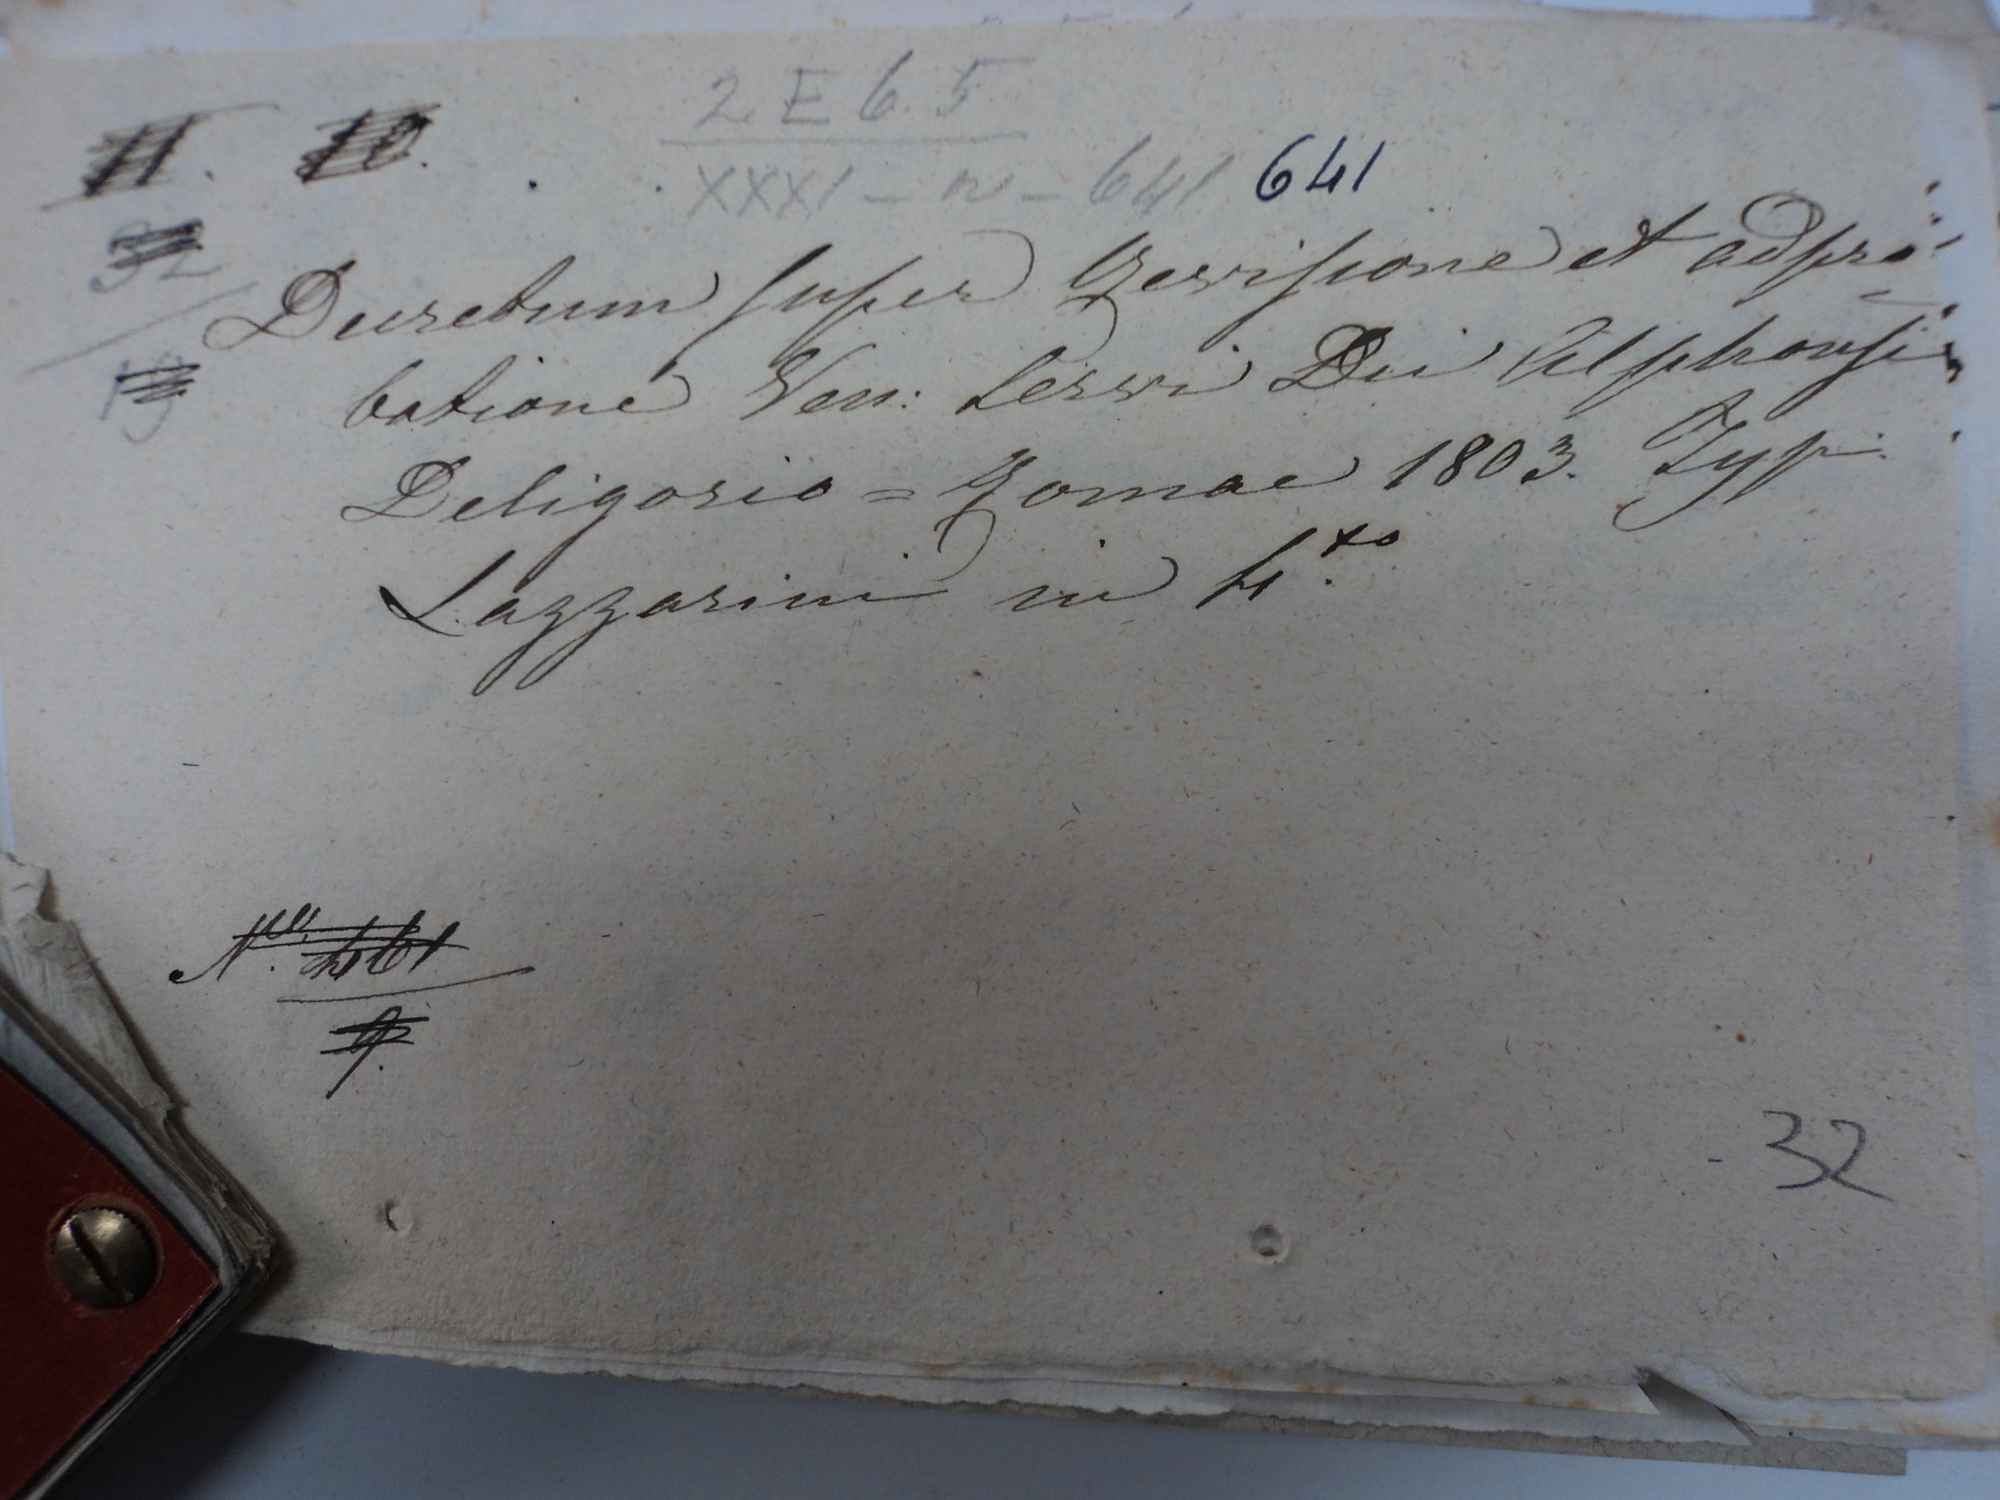 2 E 6 5
XXXI - n - 641 641
Decretum super Revisione et adpro-
batione Ven: Servi Dei Alphonsi
Deligorio = Romae 1803. Typ:
Lazzarini in 4.to
N. 461
9.
32